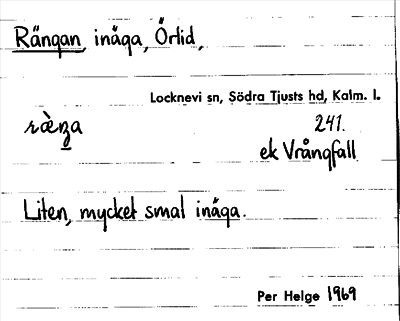 Rängan, inäga, Örtid,
Locknevi sn, Södra Tjusts hd, Kalm. l.
241.
ek Vrångfall
Liten, mycket smal inäga.
Per Helge 1969